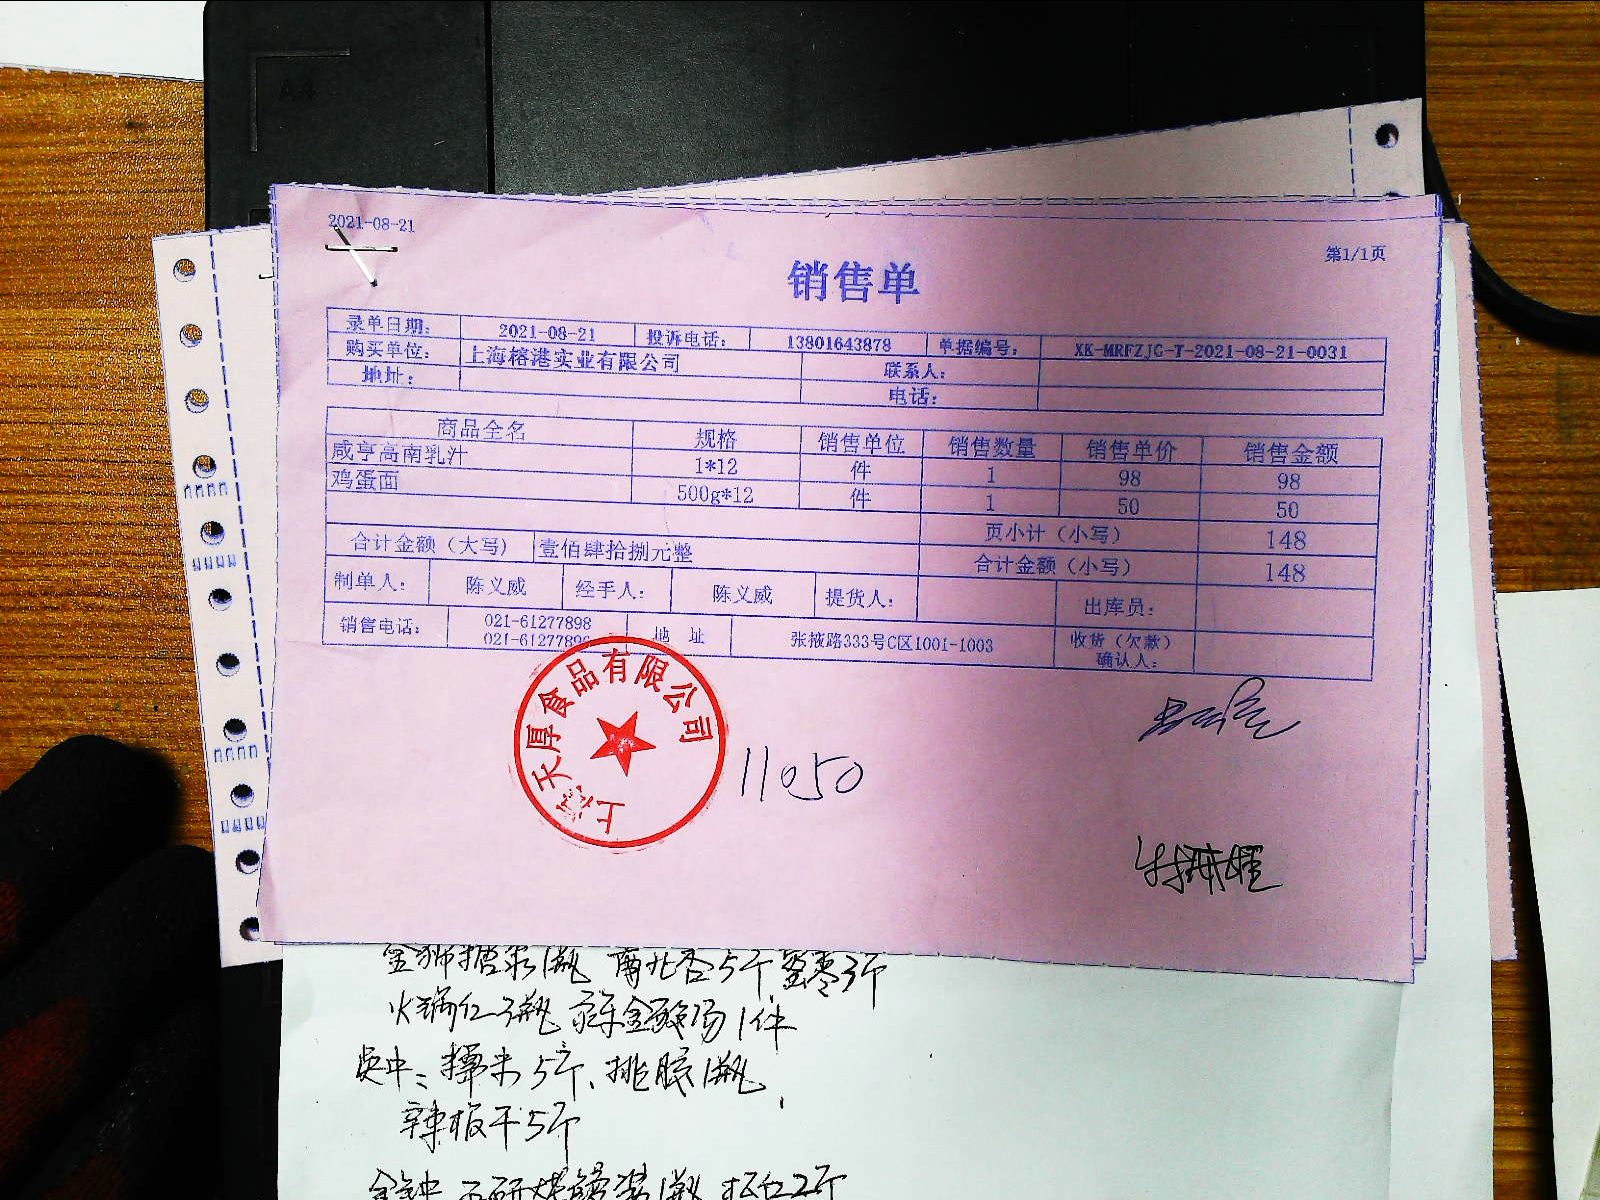 A4
2021-08-21
第1/1页
销售单
录单日期： 2021-08-21 投诉电话： 13801643878 单据编号： XK-MRFZJG-T-2021-08-21-0031
购买单位： 上海榕港实业有限公司 联系人：
地址： 电话：
商品全名 规格 销售单位 销售数量 销售单价 销售金额
咸亨高南乳汁 1*12 件 1 98 98
鸡蛋面 500g*12 件 1 50 50
页小计（小写） 148
合计金额（大写） 壹佰肆拾捌元整 合计金额（小写） 148
制单人： 陈义威 经手人： 陈义威 提货人： 出库员：
销售电话： 021-61277898 地 址 张掖路333号C区1001-1003 收货（欠款）
021-6127789 确认人：
上海天厚食品有限公司
11050
南北杏5个 蜜枣3个
火锅红3瓶 1件
5个、
辣椒干5个